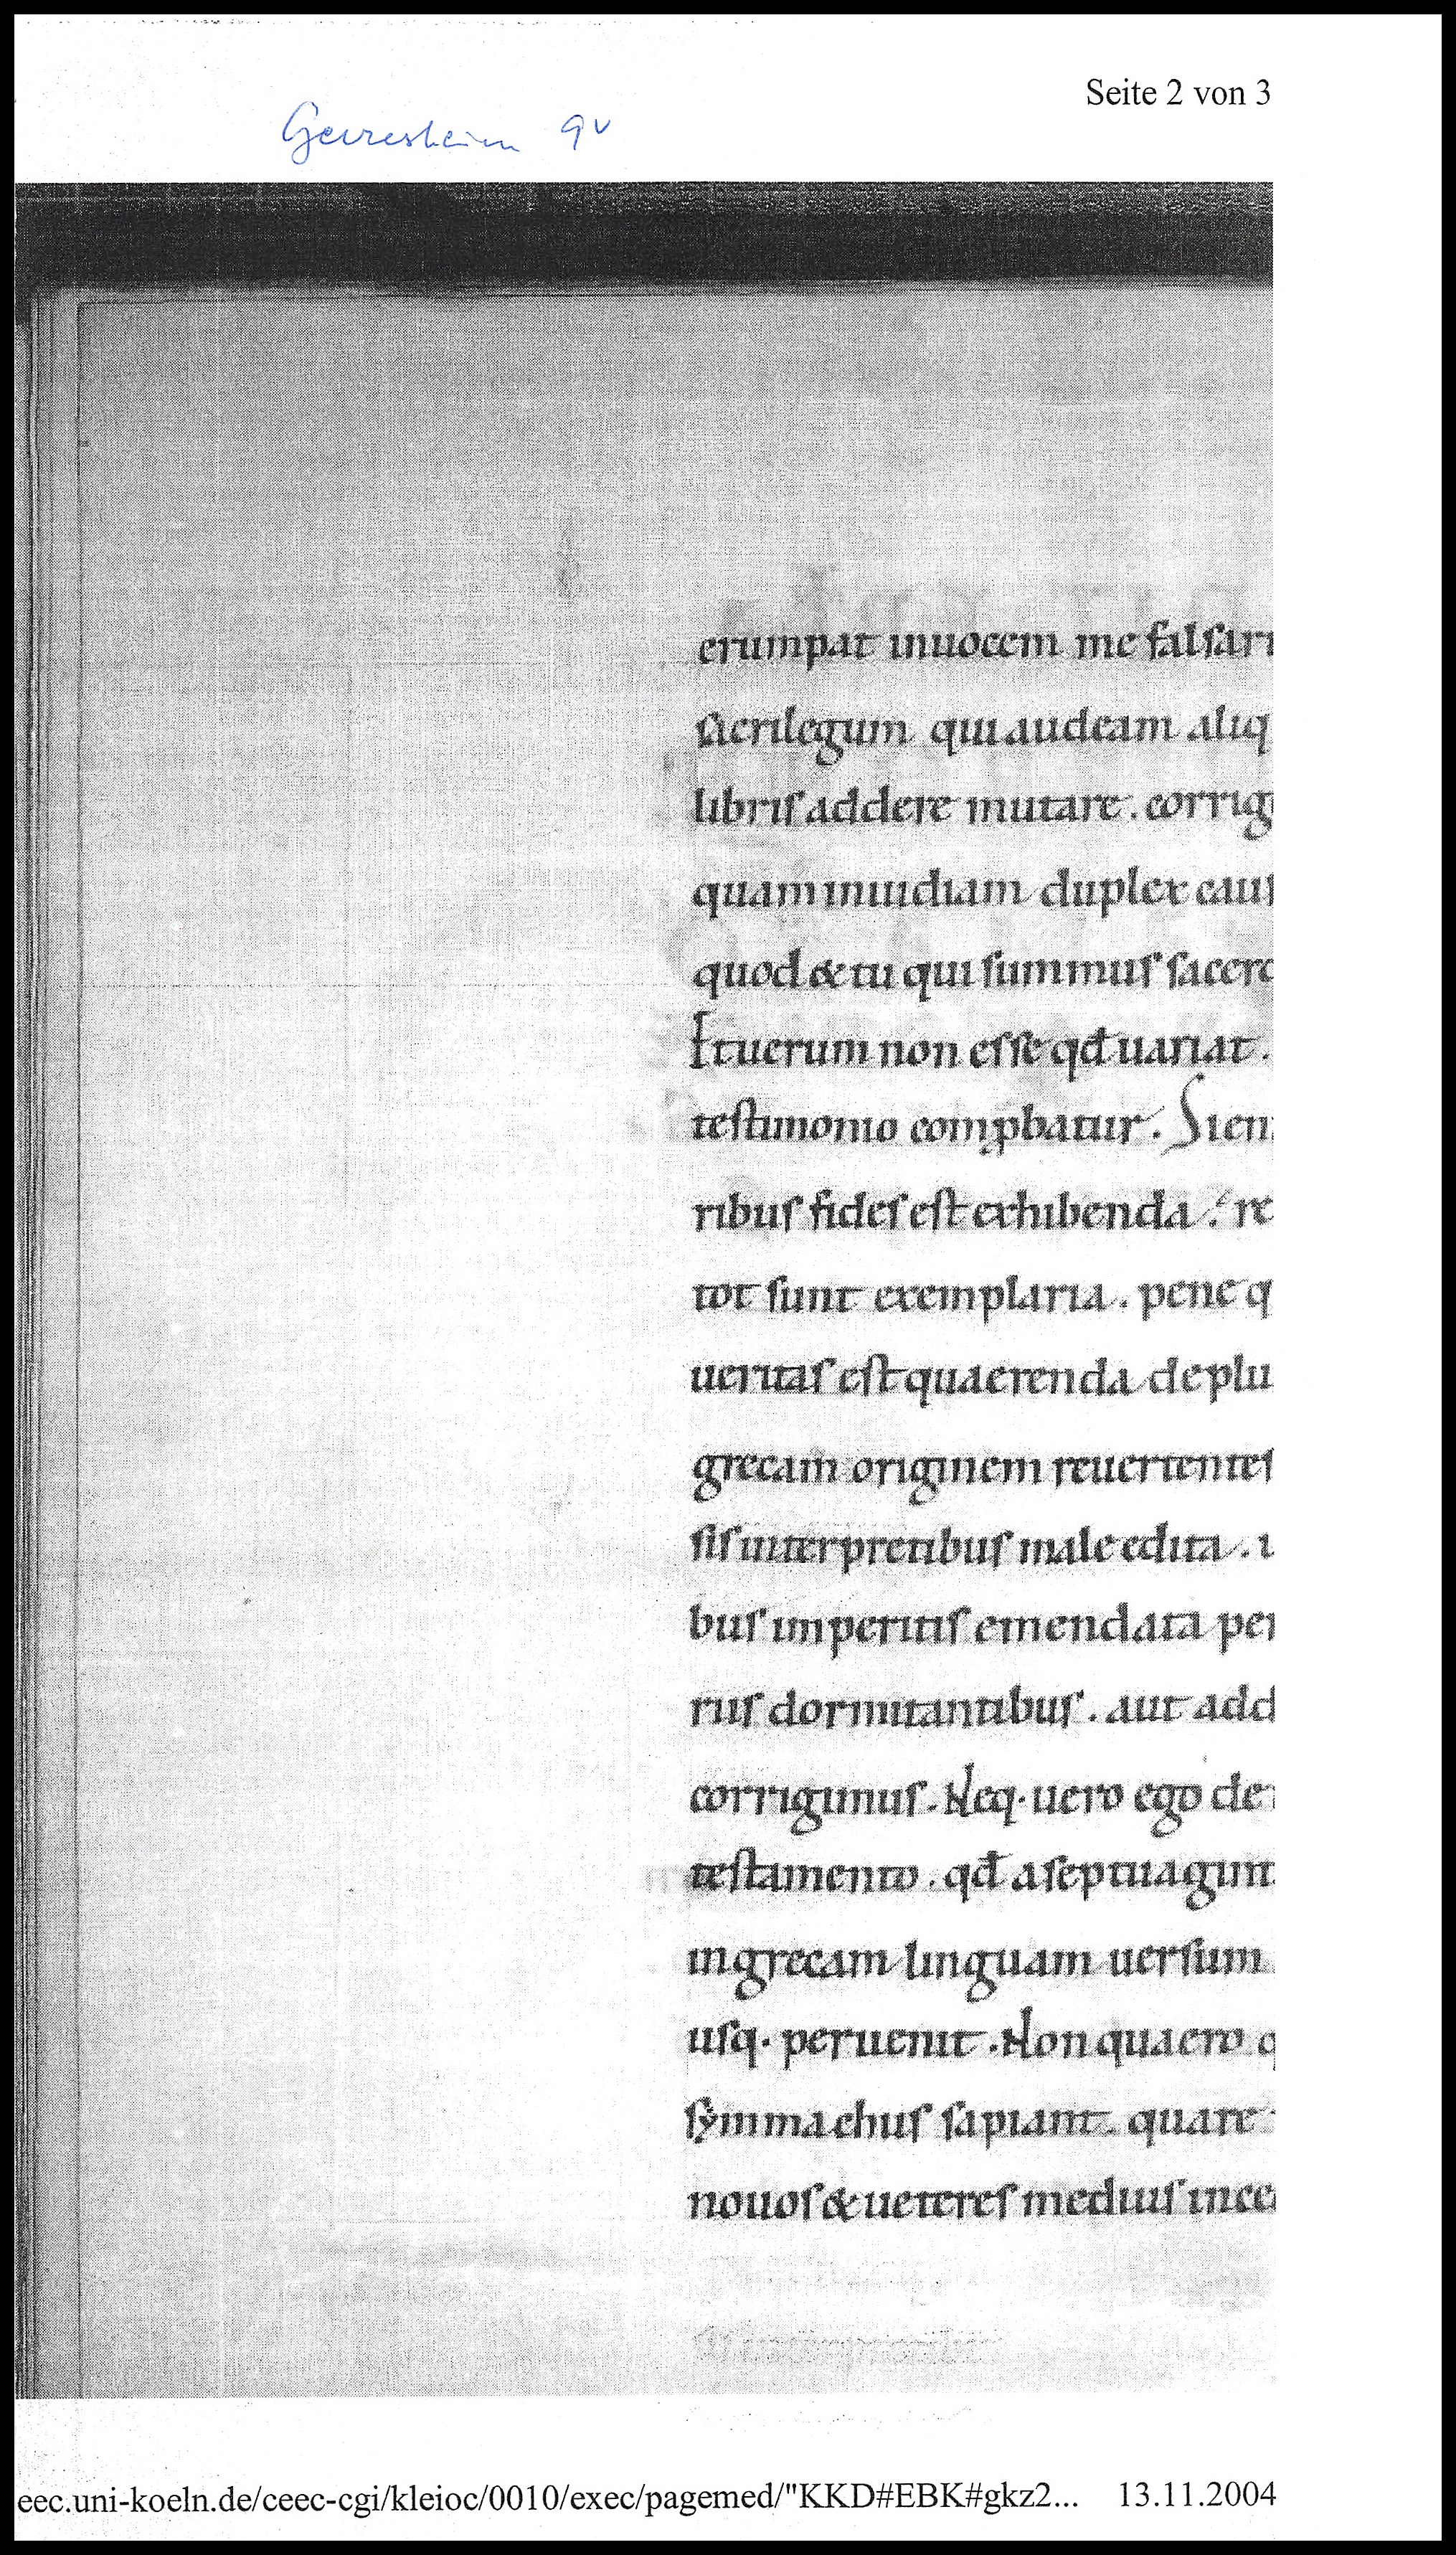 Seite 2 von 3
Gerresheim 9v
erumpat inuocem me falsari
sacrilegum qui audeam aliq
libris addere mutare. corrig
quam inuidiam duplex caus
quod & tu qui summus sacerd
Et uerum non esse qđ uariat.
testimonio comꝓbatur. Si en
ribus fides est exhibenda. re
tot sunt exemplaria. pene q
ueritas est quaerenda de plu
grecam originem reuertentes
sis interpretibus male edita. u
bus imperitis emendata per
rus dormitantibus. aut add
corrigimus. Neq· uero ego de
testamento. qđ aseptuagint
ingrecam linguam uersum
usq· peruenit. Non quaero q
symmachus sapiant. quare
nouos & ueteres medius ince
eec.uni-koeln.de/ceec-cgi/kleioc/0010/exec/pagemed/"KKD#EBK#gkz2... 13.11.2004